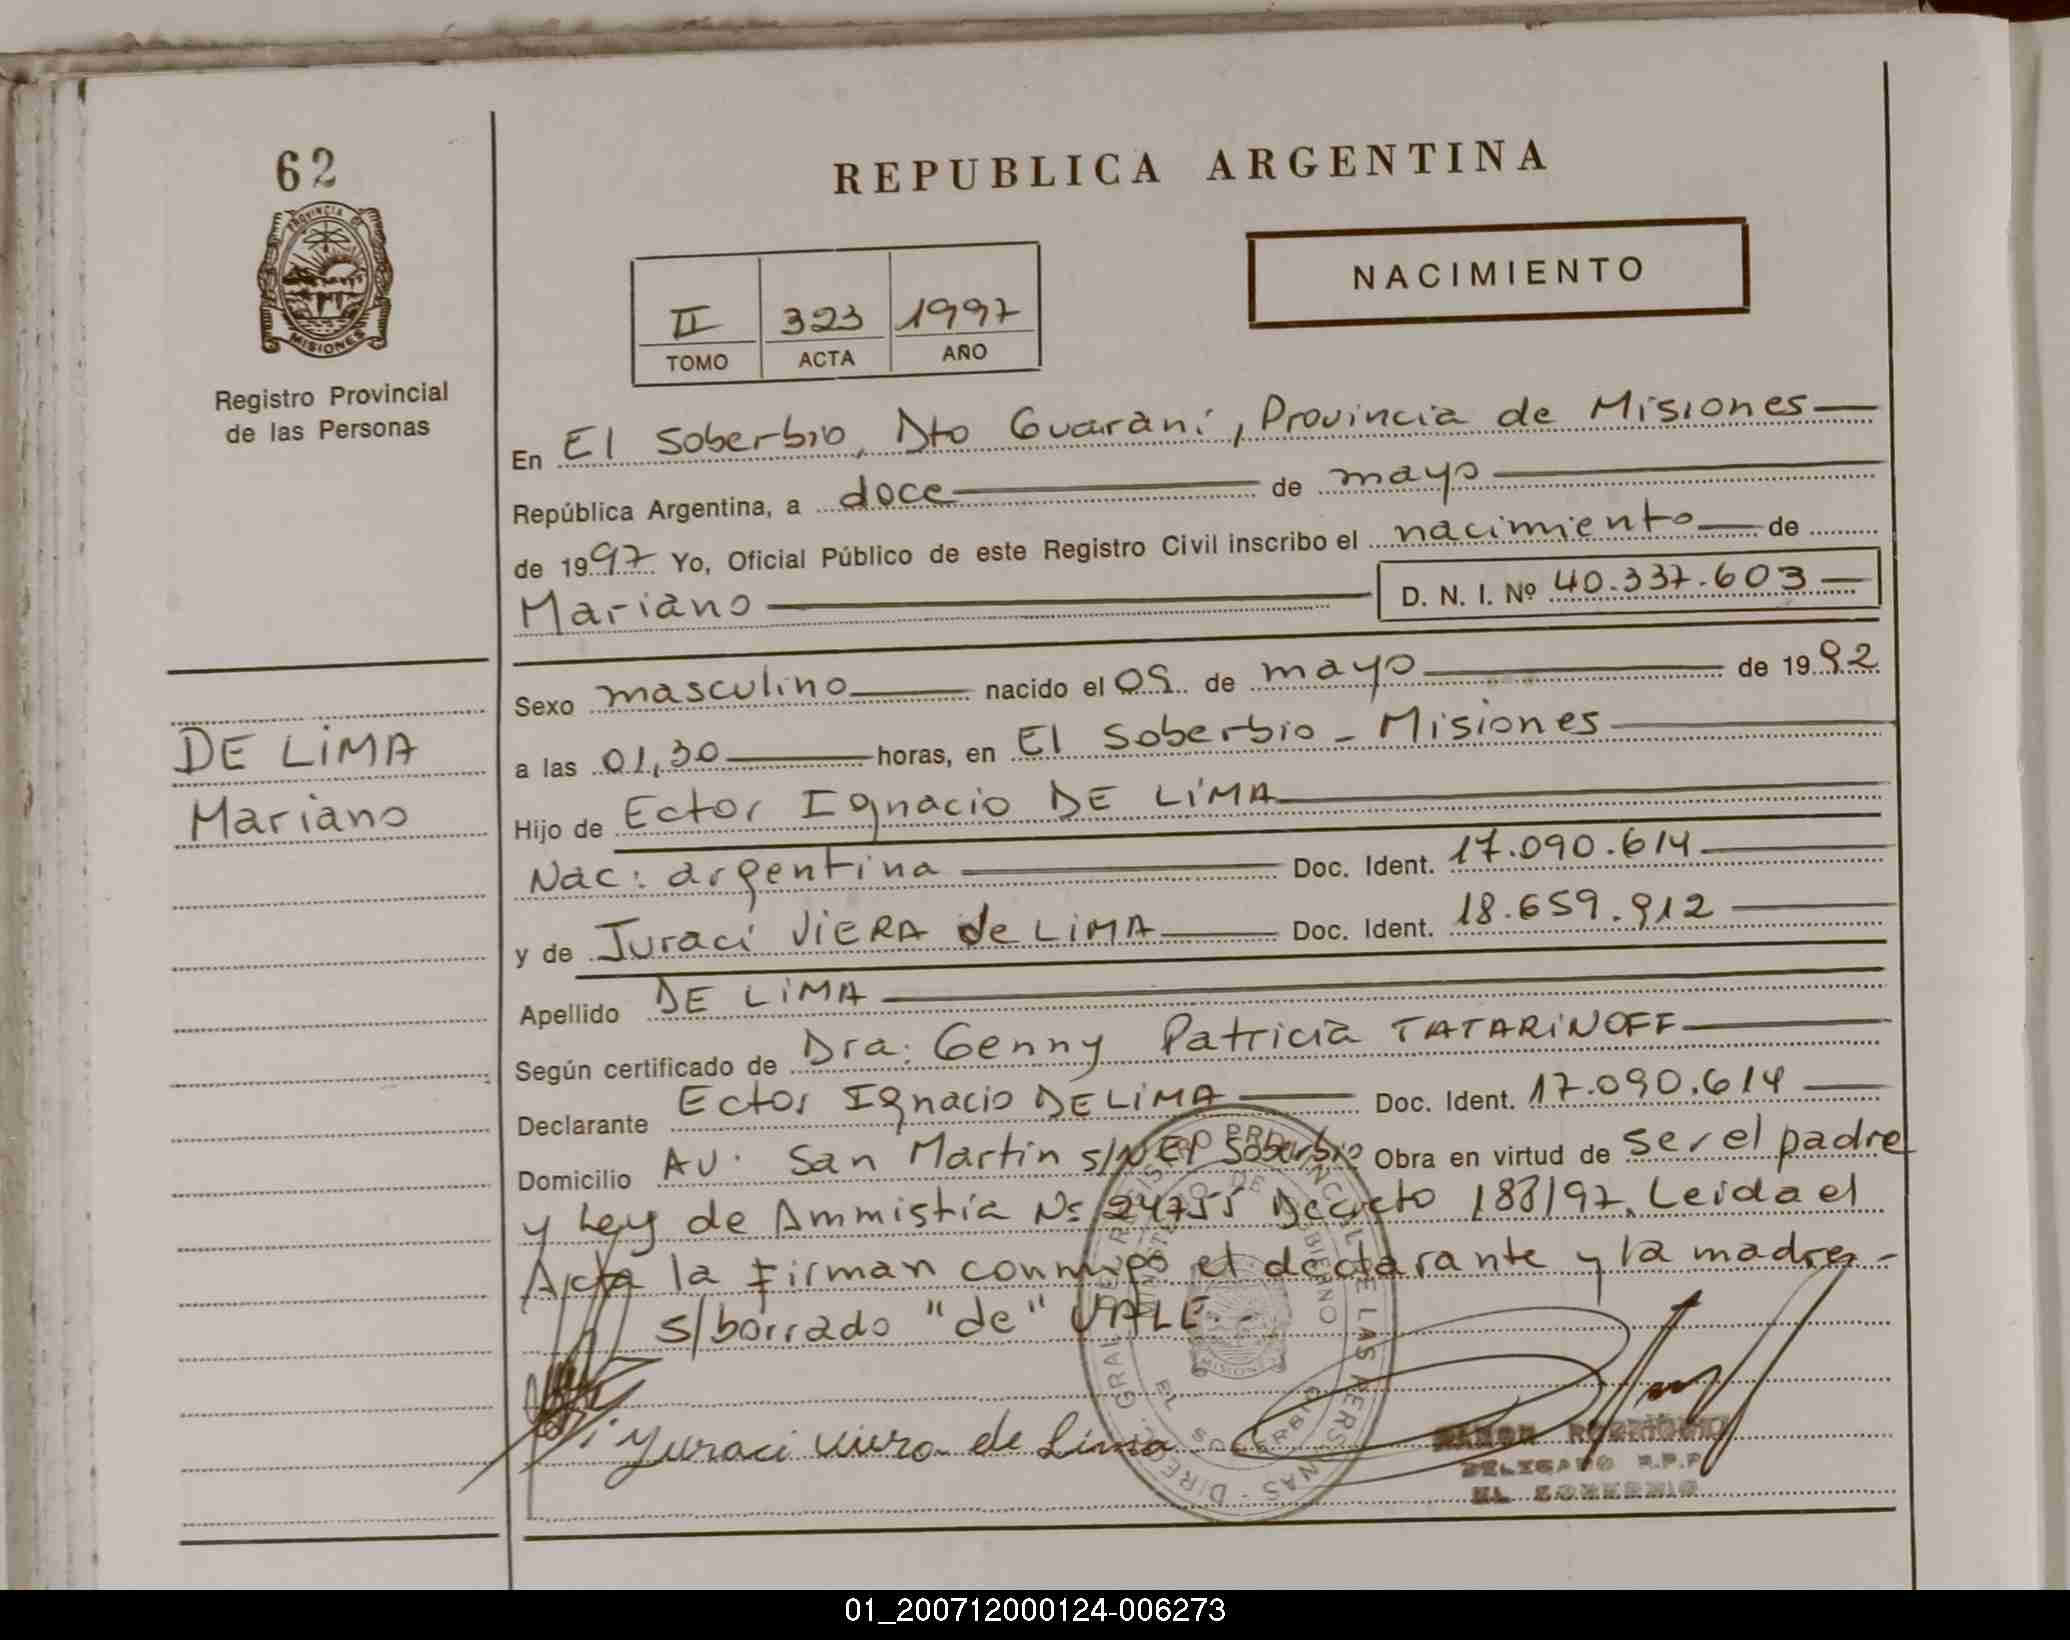 62
REPUBLICA ARGENTINA
PROVINCIA DE
MISIONES
Registro Provincial
de las Personas
II 323 1997
TOMO ACTA AÑO
NACIMIENTO
En El Soberbio, Dto Guaraní, Provincia de Misiones
República Argentina, a doce de mayo
de 1997 Yo, Oficial Público de este Registro Civil inscribo el nacimiento de
Mariano D. N. I. Nº 40.337.603
Sexo masculino nacido el 09 de mayo de 1992
a las 01,30 horas, en El Soberbio - Misiones
DE LIMA
Mariano
Hijo de Ector Ignacio DE LIMA
Nac: argentina Doc. Ident. 17.090.614
y de Juraci VIERA de LIMA Doc. Ident. 18.659.912
Apellido DE LIMA
Según certificado de Dra: Genny Patricia TATARINOFF
Declarante Ector Ignacio DE LIMA Doc. Ident. 17.090.614
Domicilio Av. San Martín s/N El Soberbio Obra en virtud de ser el padre
y Ley de Ammistía Nº 24755 Decreto 188/97. Leida el
Acta la Firman conmigo el declarante y la madre.-
s/borrado "de" VALE.-
Juraci viera de Lima
DELEGADO R.P.P
EL SOBERBIO
01_200712000124-006273